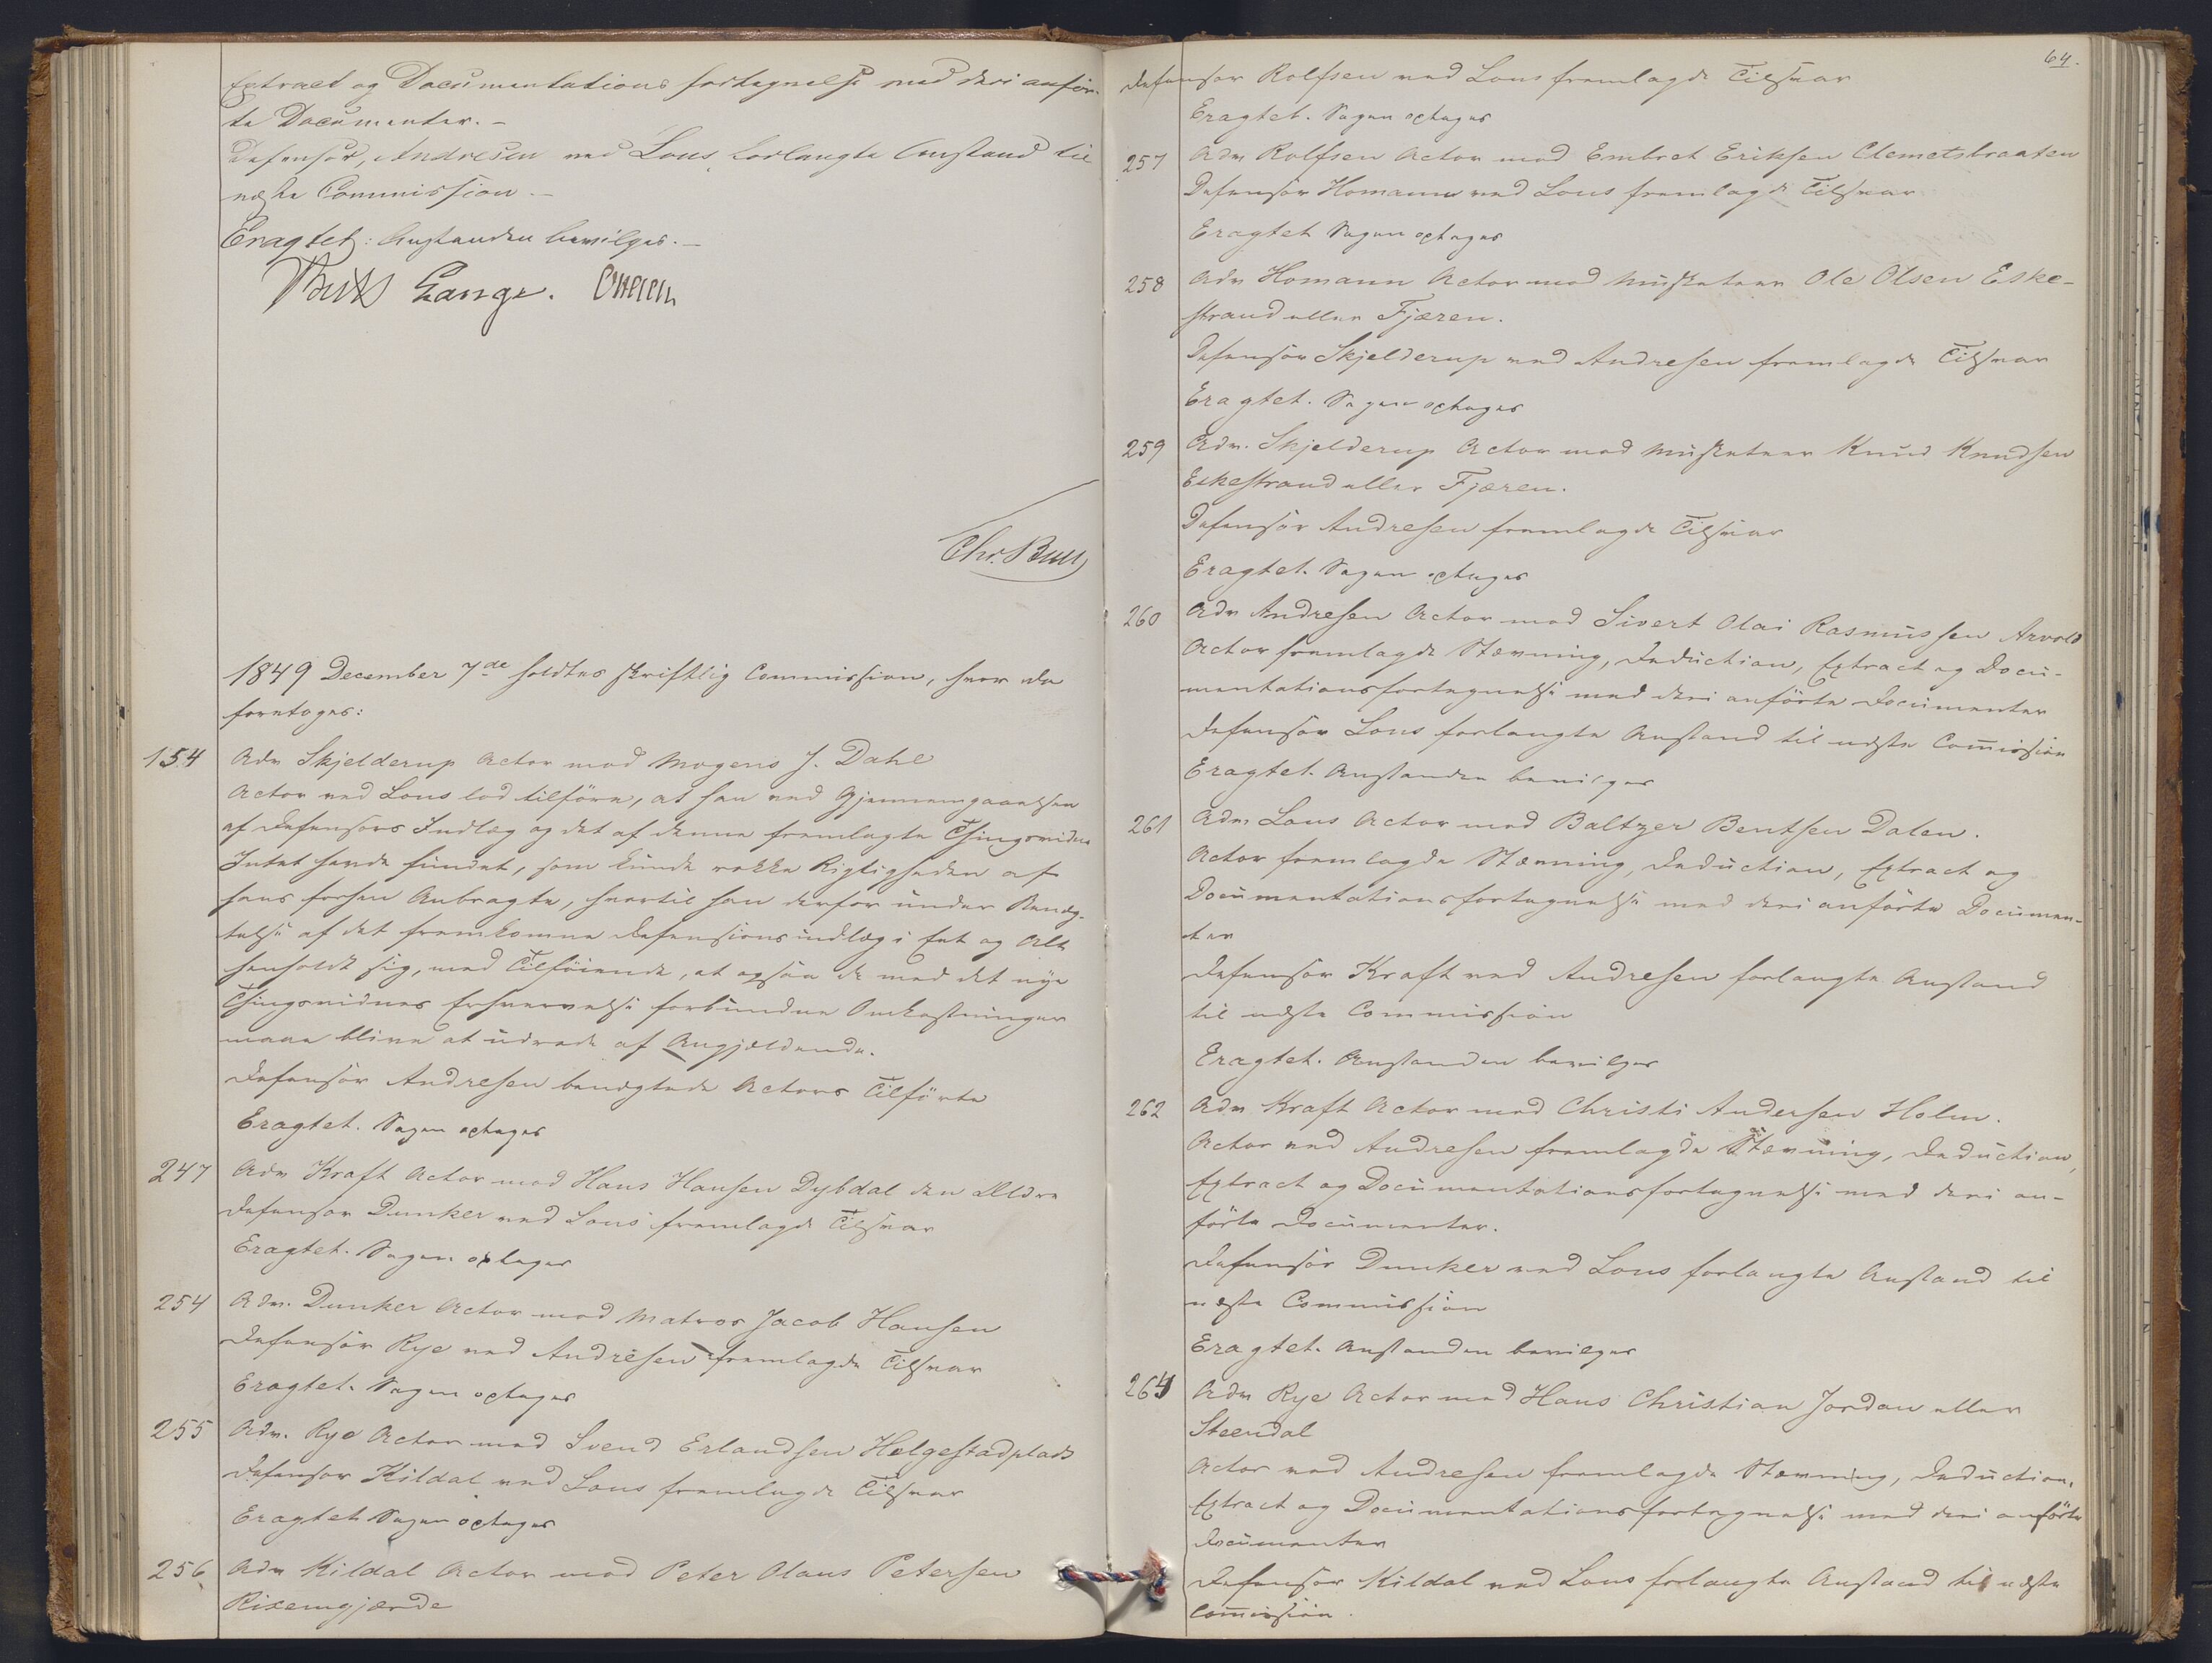 Extract og Documentations fortegnelse med deri anför-
te Documenter. –
Defensor, Andresen ved Lous forlangte Anstand til
næste Commission –
Eragtet: Anstanden bevilges. –
Lange.
Chr. Bull
1849 December 7de holdtes skriftlig Commission, hvor da
foretoges:
154 Adv Skjelderup Actor mod Mogens J. Dahl
Actor ved Lous lod tilföre, at han ved Gjennemgaaelsen
af Defensors Indlæg og det af denne fremlagte Thingsvidne
Intet havde fundet, som kunde rokke Rigtigheden af
hans forhen Anbragte, hvortil han derfor under Benæg-
telse af det fremkomne Defensionsindlæg i Eet og Alt
henholdt sig, med Tilföiende, at ogsaa de med det nye
Thingsvidnes Erhvervelse forbundne Omkostninger
maae blive at udrede af Angjældende.
Defensor Andresen benægtede Actors Tilförte
Eragtet. Sagen optages
247 Adv Kraft Actor mod Hans Hansen Dybdal den Ældre
Defensor Dunker ved Lous fremlagde Tilsvar
Eragtet. Sagen optages
254 Adv. Dunker Actor mod Matros Jacob Hansen
Defensor Rye ved Andresen fremlagde Tilsvar
Eragtet. Sagen optages
255 Adv. Rye Actor mod Svend Erlandsen Helgestadplads
Defensor Kildal ved Lous fremlagde Tilsvar
Eragtet Sagen optages
256 Adv Kildal Actor mod Peter Olaus Petersen
Rixemgjærde
64.
Defensor Rolfsen ved Lous fremlagde Tilsvar
Eragtet. Sagen optages
257 Adv Rolfsen Actor mod Embret Eriksen Clemetsbraaten
Defensor Homann ved Lous fremlagde Tilsvar
Eragtet Sagen optages
258 Adv Homann Actor mod Musketeer Ole Olsen Eske-
strand eller Fjæren.
Defensor Skjelderup ved Andresen fremlagde Tilsvar
Eragtet. Sagen optages
259 Adv. Skjelderup Actor mod Musketeer Knud Knudsen
Eskestrand eller Fjæren.
Defensor Andresen fremlagde Tilsvar
Eragtet. Sagen optages
260 Adv Andresen Actor mod Sivert Olai Rasmussen Arvold
Actor fremlagde Stævning, Deduction, Extract og Docu-
mentationsfortegnelse med deri anförte Documenter
Defensor Lous forlangte Anstand til næste Commission
Eragtet. Anstanden bevilges
261 Adv Lous Actor mod Baltzer Bentsen Dalen.
Actor fremlagde Stævning, Deduction, Extract og
Documentationsfortegnelse med deri anförte Documen-
ter
Defensor Kraft ved Andresen forlangte Anstand
til næste Commission
Eragtet. Anstanden bevilges
262 Adv Kraft Actor mod Christi Andersen Holm.
Actor ved Andresen fremlagde Stævning, Deduction,
Extract og Documentationsfortegnelse med deri an-
förte Documenter.
Defensor Dunker ved Lous forlangte Anstand til
næste Commission
Eragtet. Anstanden bevilges
264 Adv Rye Actor mod Hans Christian Jordan eller
Steendal
Actor ved Andresen fremlagde Stævning, Deduction,
Extract og Documentationsfortegnelse med deri anförte
Documenter
Defensor Kildal ved Lous forlangte Anstand til næste
Commission.